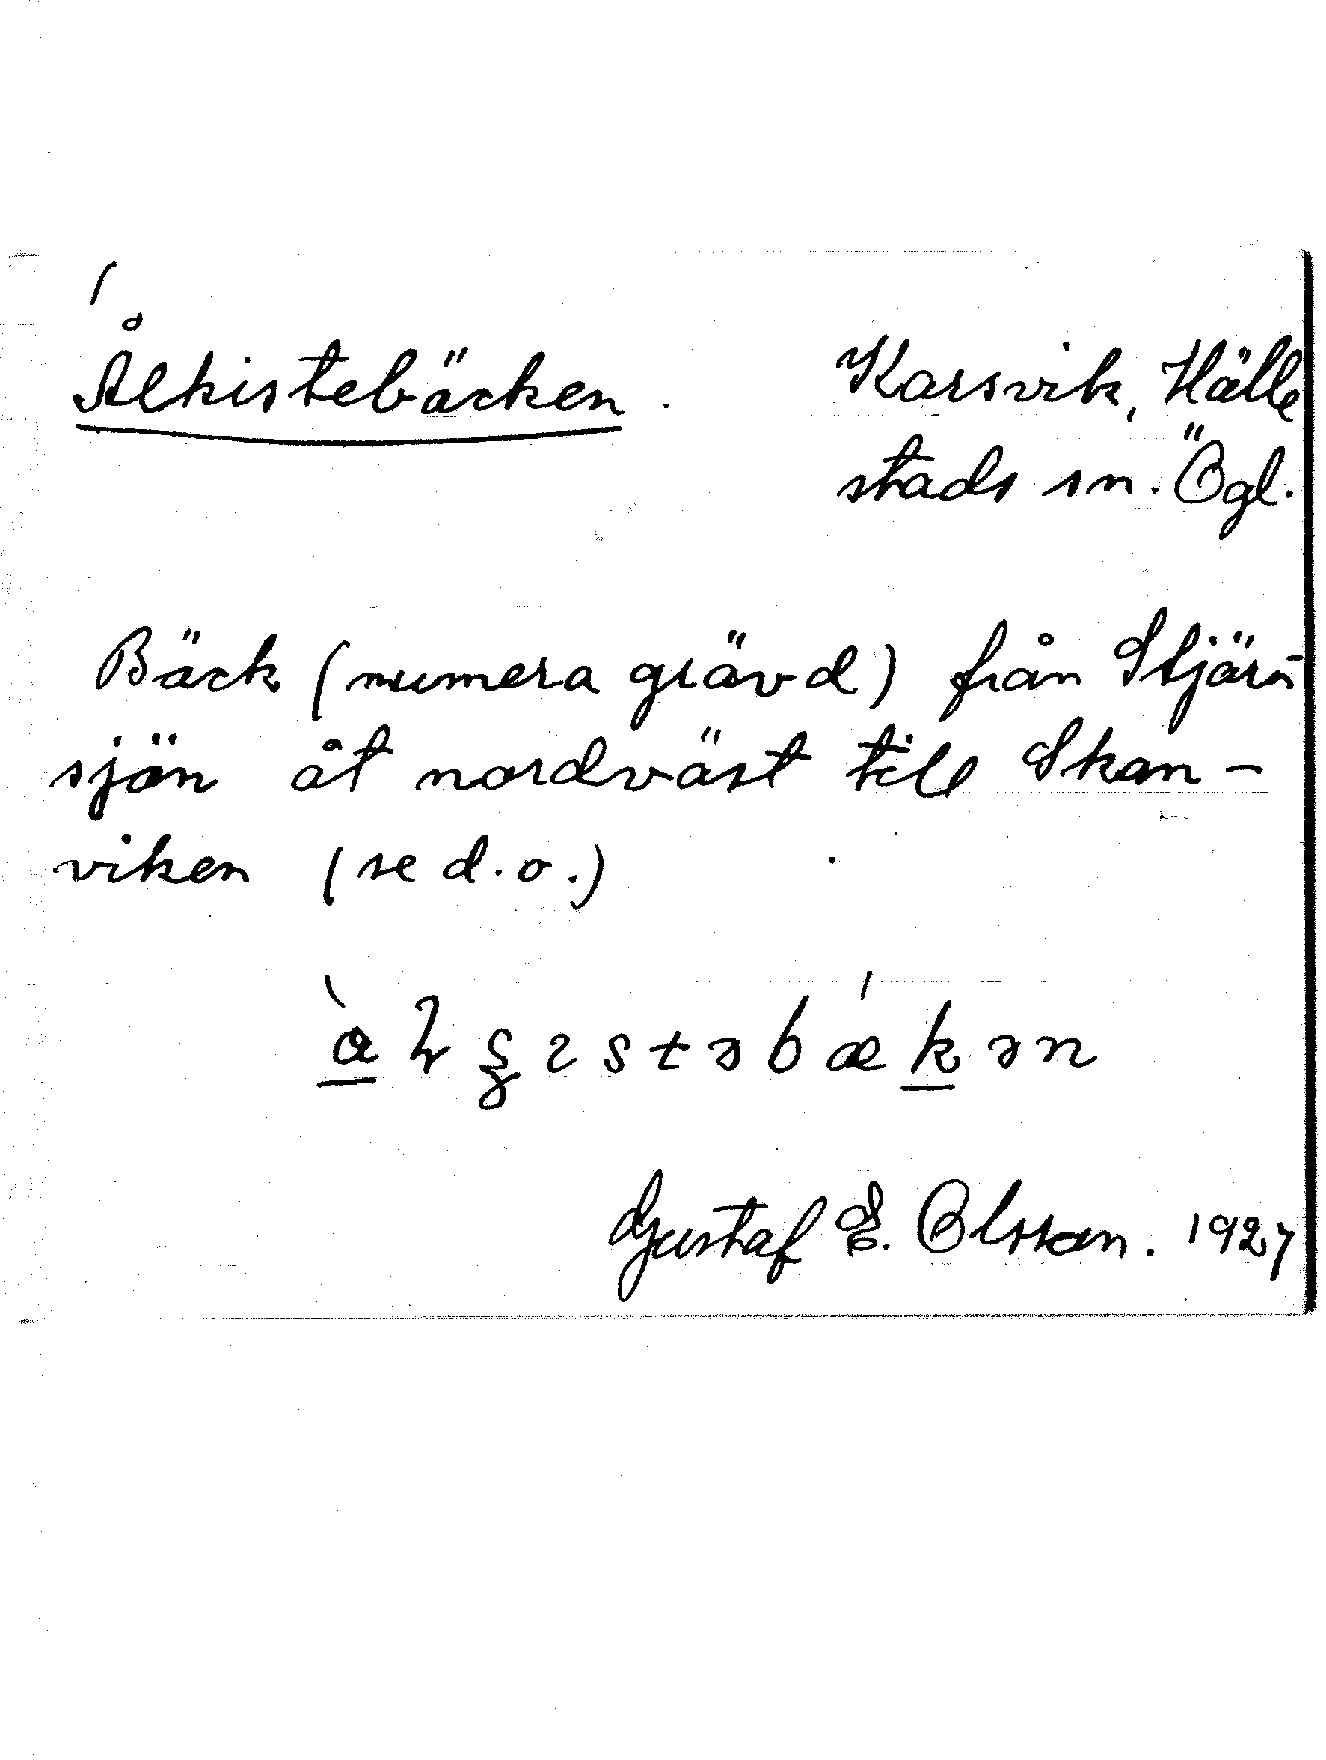 Ålkistebäcken. Karsvik, Hälle
stads sn. Ögl.
Bäck (numera grävd) från Stjärn
sjön åt nordväst till Skan-
viken (se d.o.)
Gustaf E. Olsson. 1927